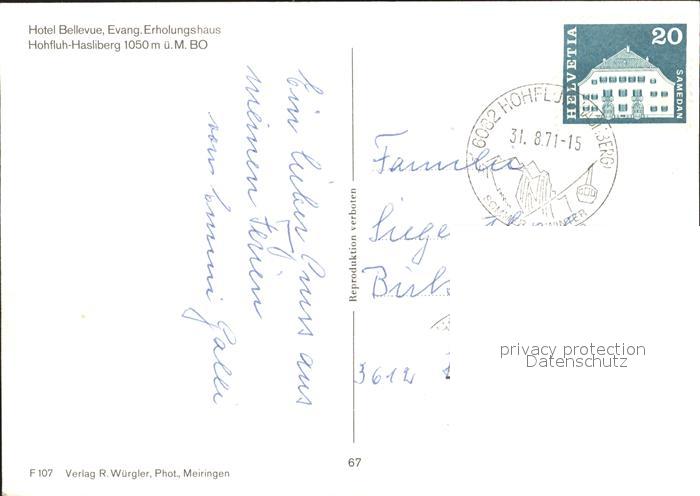 Hotel Bellevue, Evang. Erholungshaus
Hohfluh-Hasliberg 1050 m ü. M. BO
Ein lieber Gruss aus
meinen Ferien
von Emmi Galli
Reproduktion verboten
HELVETIA
20
SAMEDAN
6082 HOHFLUH
31.8.71-15
SOMMER WINTER
Familie
3612
privacy protection
Datenschutz
67
F 107 Verlag R. Würgler, Phot., Meiringen